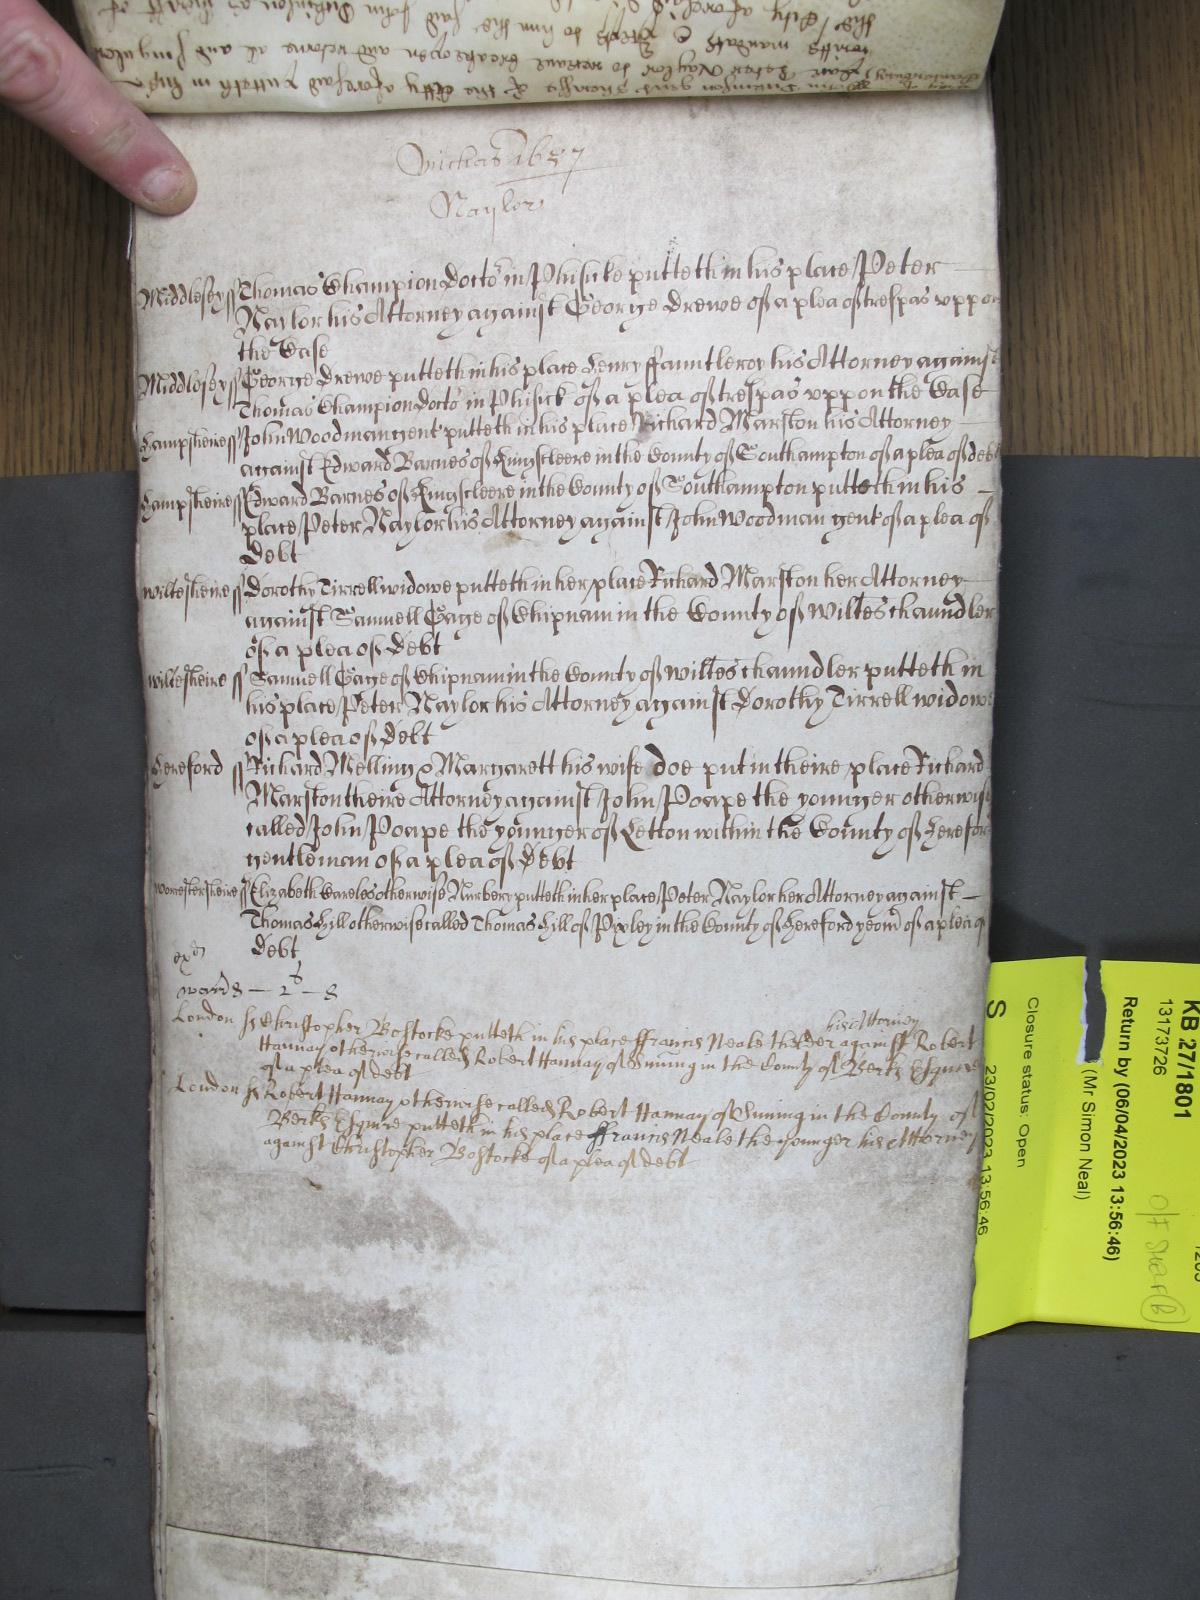 Michas 1657
Naylor
Middlesex ss Thomas Champion Doctor in Phisicke putteth in his place Peter
Naylor his Attorney against George Drewe of a plea of trespas uppon
the Case
Middlesex ss George Drewe putteth in his place Henry ffauntleroy his Attorney against
Thomas Champion Doctor in Phisick of a plea of trespas uppon the Case
Hampsheire ss John Woodman gent putteth in his place Richard Marston his Attorney
against Edward Barnes of Kingscleere in the County of Southampton of a plea of debt
Hampsheire ss Edward Barnes of Kingscleere in the County of Southampton putteth in his
place Peter Naylor his Attorney against John Woodman gent of a plea of
Debt
Wiltesheire ss Dorothy Tirrell widowe putteth in her place Richard Marston her Attorney
against Samuell Gage of Chipnam in the County of Wiltes chaundler
of a plea of Debt
Wiltesheire ss Samuell Gage of Chipnam in the County of Wiltes chaundler putteth in
his place Peter Naylor his Attorney against Dorothy Tirrell widowe
of a plea of Debt
Hereford ss Richard Melling & Margarett his wife doe put in theire place Richard
Marston theire Attorney against John Poape the younger otherwise
called John Poape the younger of Letton within the County of Hereford
gentleman of a plea of Debt
Worcestersheire ss Elizabeth Careles otherwise Nurbery putteth in her place Peter Naylor her Attorney against
Thomas Hill otherwise called Thomas Hill of Pixley in the County of Hereford yeom of a plea of
Debt
exd
warrs — 2s — 8
his Attorney
London ss Christopher Bostocke putteth in his place ffrancis Neale the elder against Robert
Hannay otherwise called Robert Hannay of in the County of Berks Esquire
of a plea of debt
London ss Robert Hannay otherwise called Robert Hannay of in the County of
Berks Esquire putteth in his place ffrancis Neale the younger his Attorney
against Christopher Bostocke of a plea of debt
KB 27/1801
13173726
Return by (06/04/2023 13:56:46)
(Mr Simon Neal)
Closure status: Open
S
23/02/2023 13:56:46